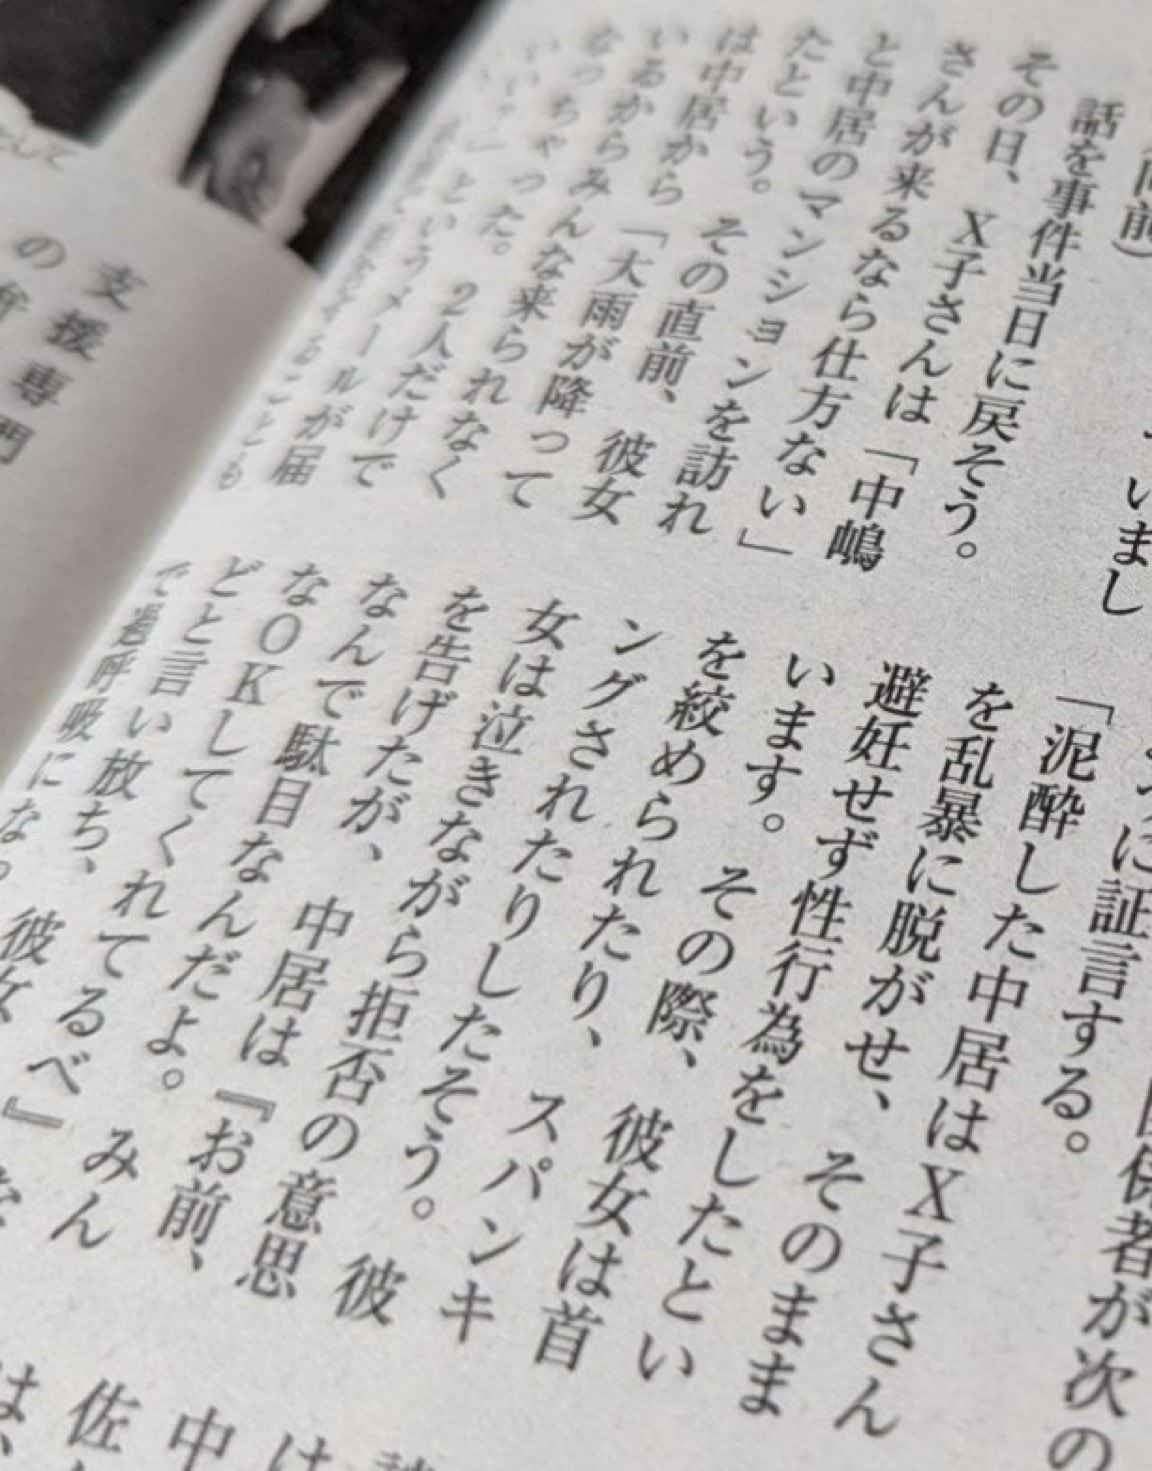 （同前）
いまし
話を事件当日に戻そう。
その日、X子さんは「中嶋
さんが来るなら仕方ない」
と中居のマンションを訪れ
たという。その直前、彼女
は中居から「大雨が降って
いるからみんな来られなく
なっちゃった。2人だけで
いい？」というメールが届
ること
も
に証言する。
関係者が次の
「泥酔した中居はX子さん
を乱暴に脱がせ、そのまま
避妊せず性行為をしたとい
います。その際、彼女は首
を絞められたり、スパンキ
ングされたりしたそう。彼
女は泣きながら拒否の意思
を告げたが、中居は『お前、
なんで駄目なんだよ。みん
なOKしてくれてるべ』
どと言い放ち、彼女
で過呼吸にな
支援専門
の弁
は
中
佐
は、